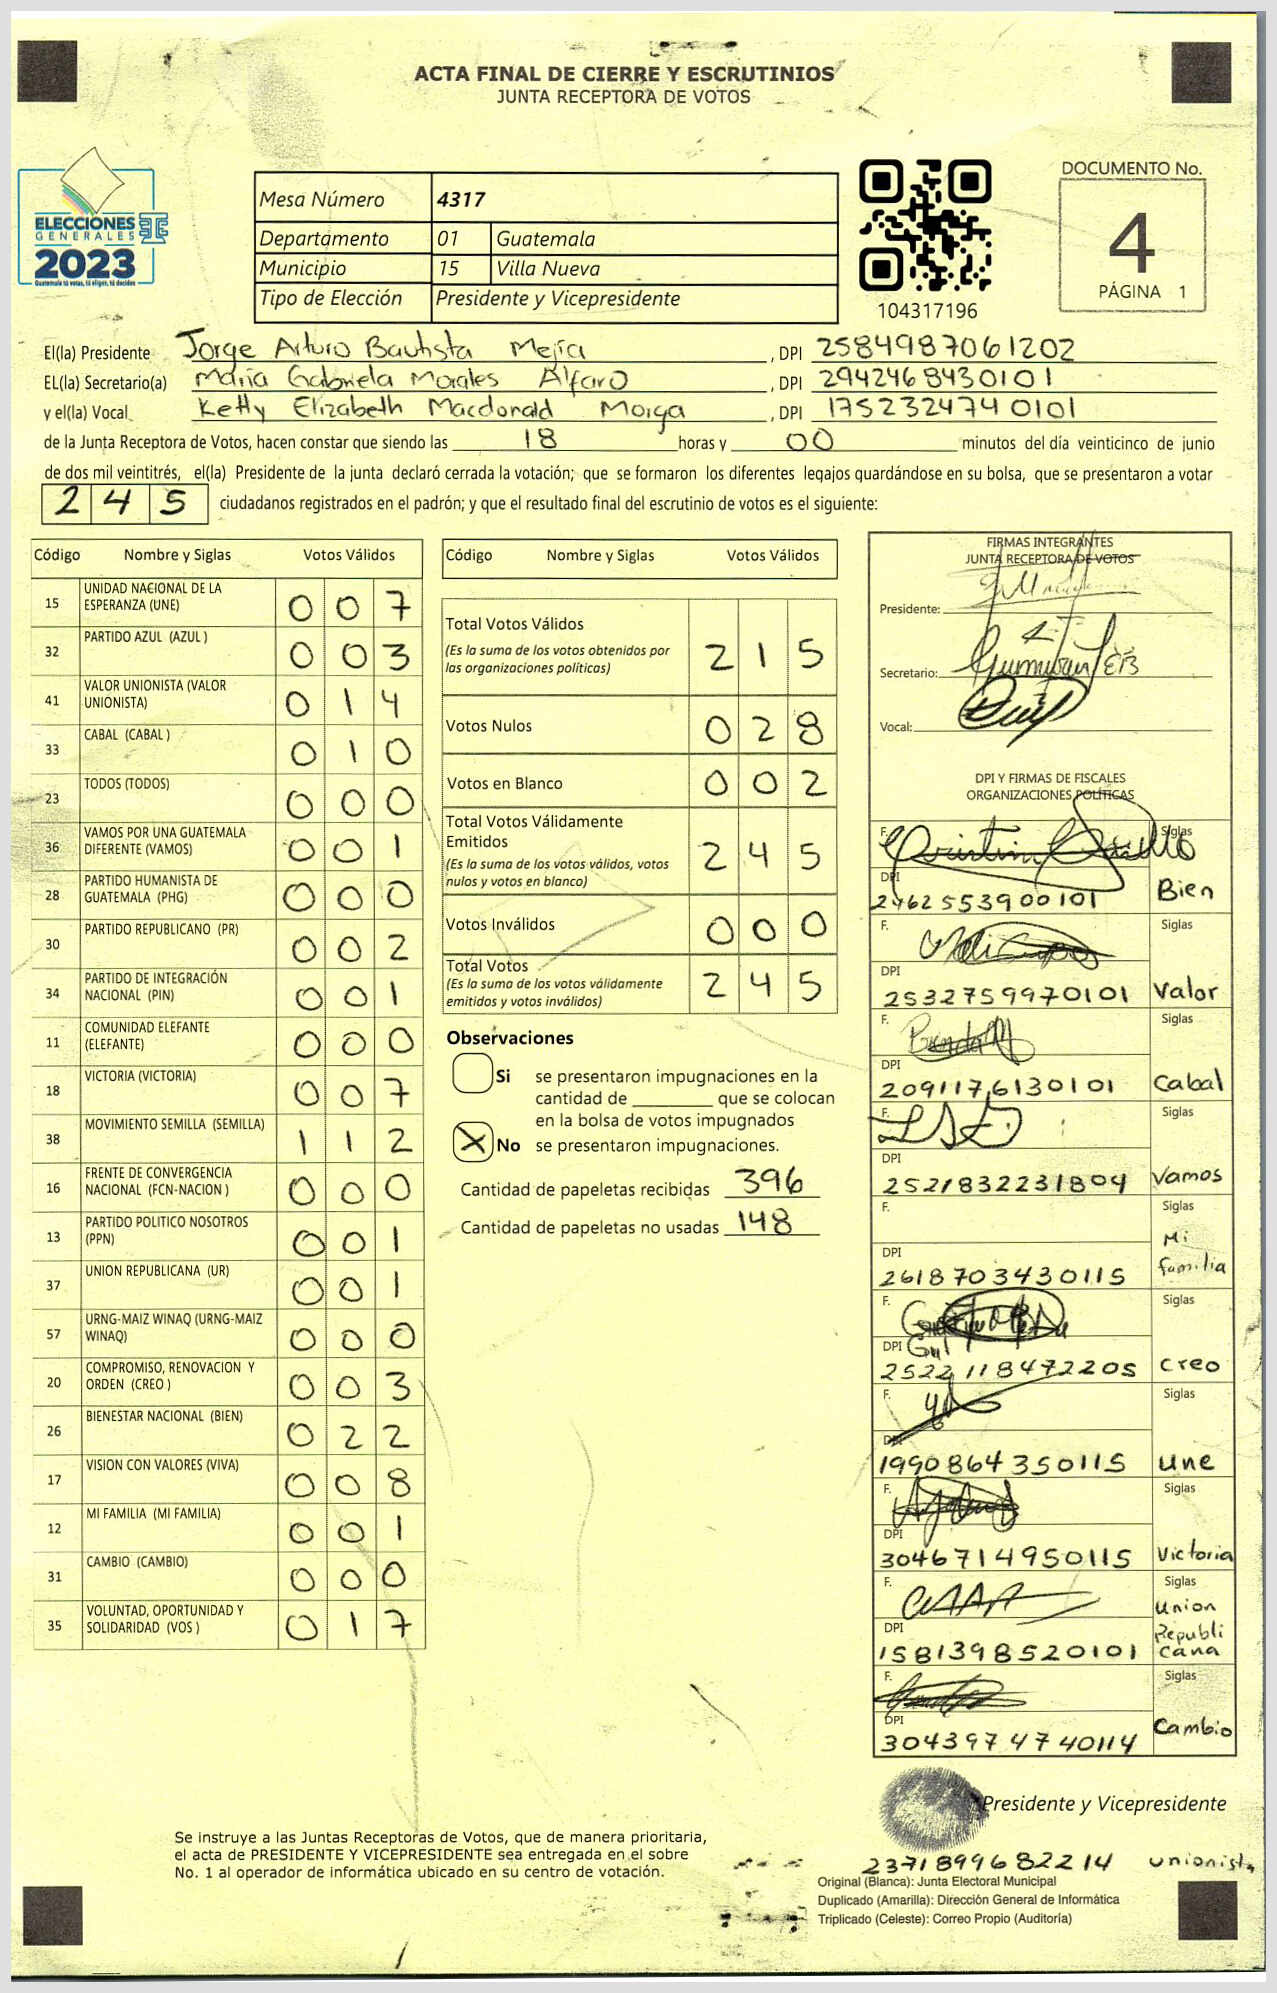 ACTA FINAL DE CIERRE Y ESCRUTINIOS
JUNTA RECEPTORA DE VOTOS
ELECCIONES
GENERALES
2023
Guatemala tú votas, tú eliges, tú decides
Mesa Número 4317
Departamento 01 Guatemala
Municipio 15 Villa Nueva
Tipo de Elección Presidente y Vicepresidente
104317196
DOCUMENTO No.
4
PÁGINA 1
El(la) Presidente Jorge Arturo Bautista Mejía , DPI 2584987061202
EL(la) Secretario(a) Maria Gabriela Morales Alfaro , DPI 2942468430101
y el(la) Vocal Ketty Elizabeth Macdonald Morga , DPI 1752324740101
de la Junta Receptora de Votos, hacen constar que siendo las 18 horas y 00 minutos del día veinticinco de junio
de dos mil veintitrés, el(la) Presidente de la junta declaró cerrada la votación; que se formaron los diferentes legajos guardándose en su bolsa, que se presentaron a votar
245 ciudadanos registrados en el padrón; y que el resultado final del escrutinio de votos es el siguiente:
Código Nombre y Siglas Votos Válidos
15 UNIDAD NACIONAL DE LA ESPERANZA (UNE) 007
32 PARTIDO AZUL (AZUL ) 003
41 VALOR UNIONISTA (VALOR UNIONISTA) 014
33 CABAL (CABAL ) 010
23 TODOS (TODOS) 000
36 VAMOS POR UNA GUATEMALA DIFERENTE (VAMOS) 001
28 PARTIDO HUMANISTA DE GUATEMALA (PHG) 000
30 PARTIDO REPUBLICANO (PR) 002
34 PARTIDO DE INTEGRACIÓN NACIONAL (PIN) 001
11 COMUNIDAD ELEFANTE (ELEFANTE) 000
18 VICTORIA (VICTORIA) 007
38 MOVIMIENTO SEMILLA (SEMILLA) 112
16 FRENTE DE CONVERGENCIA NACIONAL (FCN-NACION ) 000
13 PARTIDO POLITICO NOSOTROS (PPN) 001
37 UNION REPUBLICANA (UR) 001
57 URNG-MAIZ WINAQ (URNG-MAIZ WINAQ) 000
20 COMPROMISO, RENOVACION Y ORDEN (CREO ) 003
26 BIENESTAR NACIONAL (BIEN) 022
17 VISION CON VALORES (VIVA) 008
12 MI FAMILIA (MI FAMILIA) 001
31 CAMBIO (CAMBIO) 000
35 VOLUNTAD, OPORTUNIDAD Y SOLIDARIDAD (VOS ) 017
Código Nombre y Siglas Votos Válidos
Total Votos Válidos
(Es la suma de los votos obtenidos por las organizaciones políticas) 215
Votos Nulos 028
Votos en Blanco 002
Total Votos Válidamente Emitidos
(Es la suma de los votos válidos, votos nulos y votos en blanco) 245
Votos Inválidos 000
Total Votos
(Es la suma de los votos válidamente emitidos y votos inválidos) 245
Observaciones
Si se presentaron impugnaciones en la
cantidad de ________ que se colocan
en la bolsa de votos impugnados
X No se presentaron impugnaciones.
Cantidad de papeletas recibidas 396
Cantidad de papeletas no usadas 148
FIRMAS INTEGRANTES
JUNTA RECEPTORA DE VOTOS
Presidente:
Secretario:
Vocal:
DPI Y FIRMAS DE FISCALES
ORGANIZACIONES POLÍTICAS
F. Siglas
DPI 2462553900101 Bien
F. Siglas
DPI 2532759970101 Valor
F. Siglas
DPI 2091176130101 Cabal
F. Siglas
DPI 2521832231804 Vamos
F. Siglas
DPI 2618703430115 Mi familia
F. Siglas
DPI 2522118472205 Creo
F. Siglas
DPI 1990864350115 Une
F. Siglas
DPI 3046714950115 Victoria
F. Siglas
DPI 1581398520101 Union Republicana
F. Siglas
DPI 3043974740114 Cambio
Presidente y Vicepresidente
2371899682214 unionista
Se instruye a las Juntas Receptoras de Votos, que de manera prioritaria,
el acta de PRESIDENTE Y VICEPRESIDENTE sea entregada en el sobre
No. 1 al operador de informática ubicado en su centro de votación.
Original (Blanca): Junta Electoral Municipal
Duplicado (Amarilla): Dirección General de Informática
Triplicado (Celeste): Correo Propio (Auditoría)